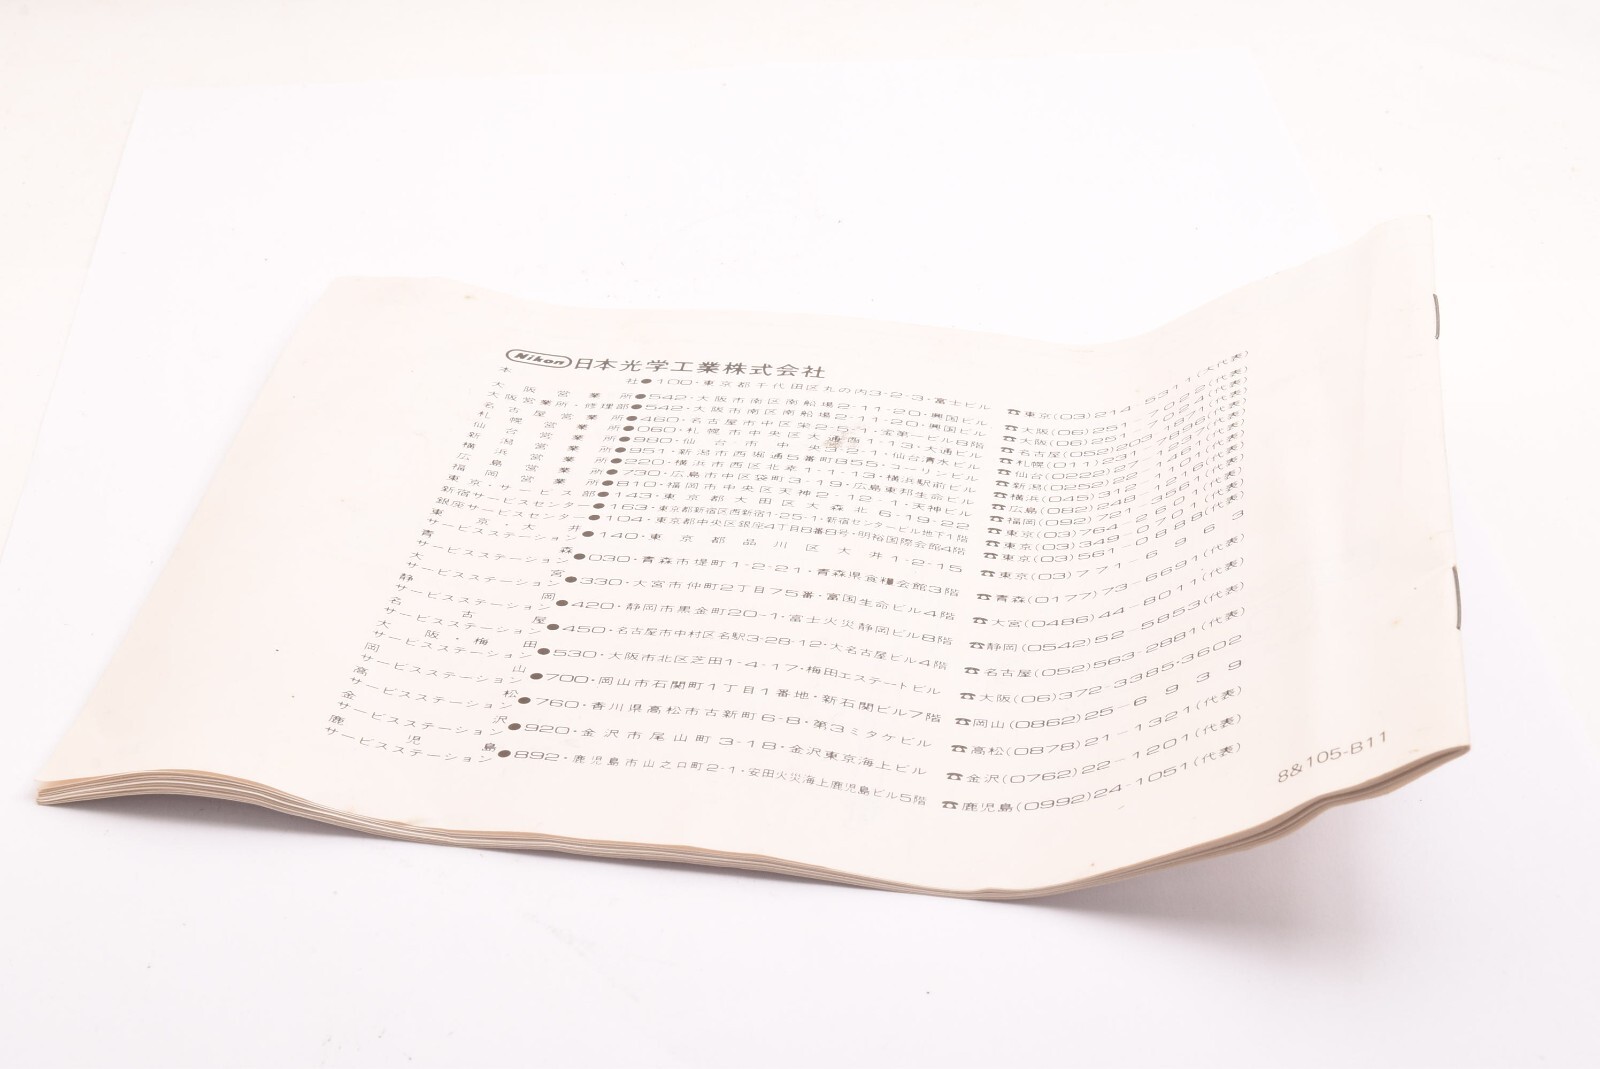 Nikon 日本光学工業株式会社
本社●100・東京都千代田区丸の内3-2-3・富士ビル ☎東京(03)214-5311(大代表)
大阪営業所●542・大阪市南区南船場2-11-20・興国ビル ☎大阪(06)251-7022(代表)
大阪営業所・修理部●542・大阪市南区南船場2-11-20・興国ビル ☎大阪(06)251-7024(代表)
名古屋営業所●460・名古屋市中区栄2-5-1・宝第一ビル8階 ☎名古屋(052)203-1871(代表)
札幌営業所●060・札幌市中央区大通西1-13・大通ビル ☎札幌(011)231-7896(代表)
仙台営業所●980・仙台市中央3-2-1・仙台清水ビル ☎仙台(0222)27-1237(代表)
新潟営業所●951・新潟市西堀通5番町855・ユーリンビル ☎新潟(0252)22-1461(代表)
横浜営業所●220・横浜市西区北幸1-1-13・横浜駅前ビル ☎横浜(045)312-1101(代表)
広島営業所●730・広島市中区袋町3-19・広島東邦生命ビル ☎広島(082)248-1216(代表)
福岡営業所●810・福岡市中央区天神2-12-1・天神ビル ☎福岡(092)721-3561(代表)
東京・サービス部●143・東京都大田区大森北6-19-22 ☎東京(03)764-2601(代表)
新宿サービスセンター●163・東京都新宿区西新宿1-25-1・新宿センタービル地下1階 ☎東京(03)349-0701(代表)
銀座サービスセンター●104・東京都中央区銀座4丁目8番8号・明裕国際会館4階 ☎東京(03)561-0388(代表)
東京・大井サービスステーション●140・東京都品川区大井1-2-15 ☎東京(03)771-6963
青森サービスステーション●030・青森市堤町1-2-21・青森県食糧会館3階 ☎青森(0177)73-6691(代表)
大宮サービスステーション●330・大宮市仲町2丁目75番・富国生命ビル4階 ☎大宮(0486)44-8011(代表)
静岡サービスステーション●420・静岡市黒金町20-1・富士火災静岡ビル8階 ☎静岡(0542)52-5853(代表)
名古屋サービスステーション●450・名古屋市中村区名駅3-28-12・大名古屋ビル4階 ☎名古屋(052)563-2881(代表)
大阪・梅田サービスステーション●530・大阪市北区芝田1-4-17・梅田エステートビル ☎大阪(06)372-3385・3602
岡山サービスステーション●700・岡山市石関町1丁目1番地・新石関ビル7階 ☎岡山(0862)25-6939
高松サービスステーション●760・香川県高松市古新町6-8・第3ミタケビル ☎高松(0878)21-1321(代表)
金沢サービスステーション●920・金沢市尾山町3-18・金沢東京海上ビル ☎金沢(0762)22-1201(代表)
鹿児島サービスステーション●892・鹿児島市山之口町2-1・安田火災海上鹿児島ビル5階 ☎鹿児島(0992)24-1051(代表)
8&105-B11